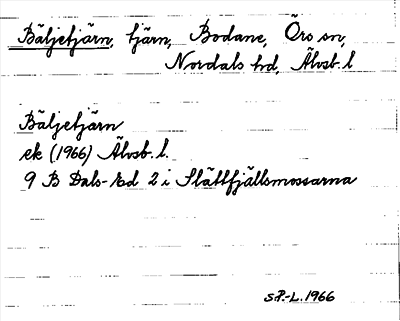 Bäljetjärn, tjärn, Bodane, Örs sn,
Nordals hd, Älvsb. l
Bäljetjärn
ek (1966) Älvsb. l.
9 B Dals-Ed 2 i Slättfjällsmossarna
S.P.-L. 1966